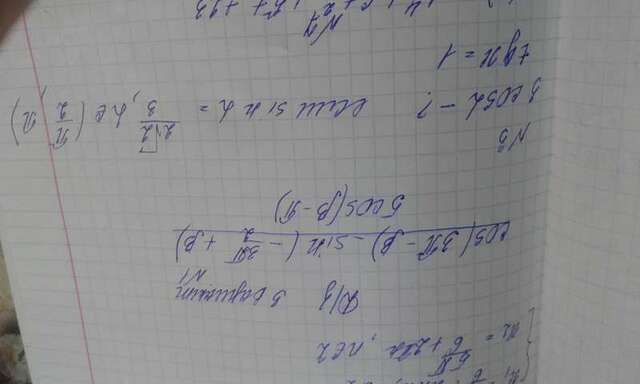 x₂ = 5π/6 + 2πn, n∈Z
Д/з 5 вариант
N1
cos(3π - β) - sin(-3π/2 + β)
5cos(β - π)
N3
3cosα - ? если sin α = 2√2/3, α ∈ (π/2; π)
tg x = 1
N7